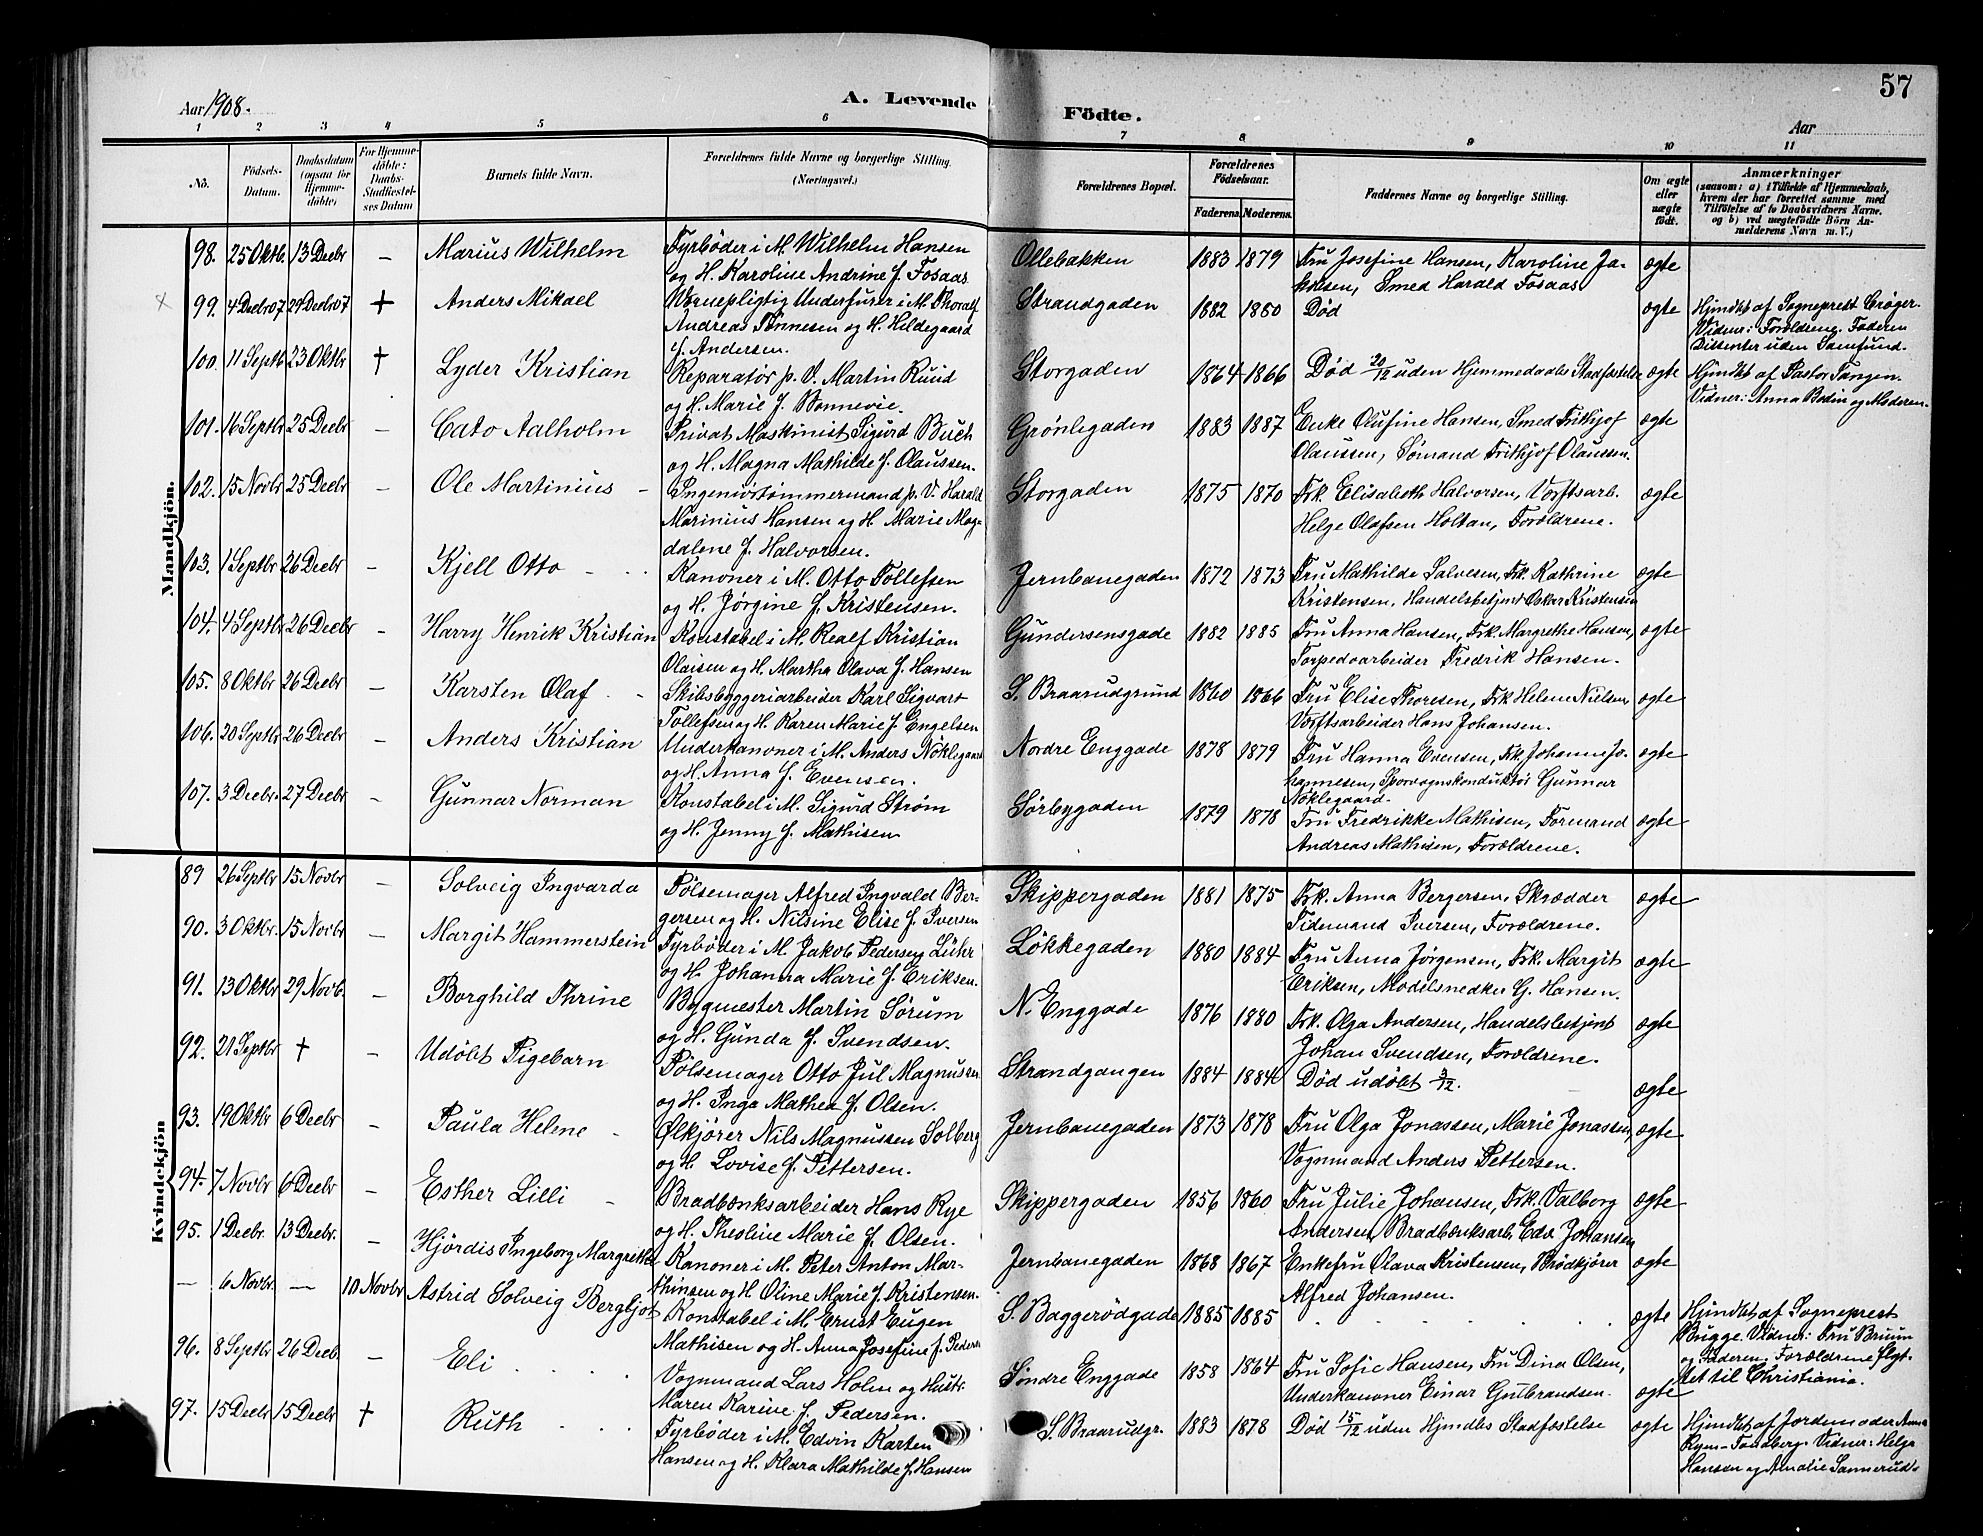 57
Aar 1908.
A. Levende Födte.
Aar
1 2 3 4 5 6 7 8 9 10 11
No.
Födsels-Datum.
Daabsdatum (ogsaa for Hjemme-döbte)
For Hjemme-döbte: Daabs-Stadfæstel-ses Datum
Barnets fulde Navn.
Forældrenes fulde Navne og borgerlige Stilling. (Næringsvei.)
Forældrenes Bopæl.
Forældrenes Födselsaar.
Faderens. Moderens.
Faddernes Navne og borgerlige Stilling.
Om ægte eller uægte födt.
Anmærkninger
(saasom: a) i Tilfælde af Hjemmedaab, hvem der har forrettet samme med Tilföielse af to Daabsvidners Navne, og b) ved uægtefödte Börn An-melderens Navn m. V.)
Mandkjön.
98. 25 Oktb. 13 Decbr – Marius Wilhelm Fyrbøder i M. Wilhelm Hansen Ollebakken 1883 1879 Fru Josefine Hansen, Karoline Ja- ægte
og H. Karoline Andrine f. Fosaas kobsen, Smed Harald Fosaas
99. 4 Decbr 07 29 Decbr 07 + Anders Mikael Vernepligtig Underfurer i M. Thoralf Strandgaden 1882 1880 Død ægte Hjmdbt af Sogneprest Crøger.
Andreas Tønnesen og H. Hildegaard Vidner: Forældrene. Faderen
f. Andersen. Dissenter uden Samfund.
100. 11 Septb 23 Oktbr † Lyder Kristian Reparatør p. V. Martin Ruud Storgaden 1864 1866 Død 20/12 uden Hjemmedaabs Stadfæstelse ægte Hjmdbt af Pastor Tangen.
og H. Marie f. Bonnevie. Vidner: Anna Bodin og Moderen.
101. 16 Septbr 25 Decbr – Cato Aalholm Privat Maskinist Sigurd Buch Grønlegaden 1883 1887 Enke Olufine Hansen, Smed Frithjof ægte
og H. Magna Mathilde f. Olaussen. Olaussen, Sømand Frithjof Olaussen.
102. 15 Novbr 25 Decbr – Ole Martinius – Ingeniørtømmermand p. V. Harald Storgaden 1875 1870 Frk. Elisabeth Halvorsen, Værftsarb. ægte
Marinius Hansen og H. Marie Mag- Helge Olafsen Holtan, Forældrene.
dalene f. Halvorsen.
103. 1 Septbr 26 Decbr – Kjell Otto Kanoner i M. Otto Tollefsen Jernbanegaden 1872 1873 Fru Mathilde Salvesen, Frk. Kathrine ægte
og H. Jørgine f. Kristensen. Kristensen, Handelsbetjent Oskar Kristensen
104. 4 Septbr 26 Decbr – Harry Henrik Kristian Konstabel i M. Realf Kristian Gundersensgade 1882 1885 Fru Anna Hansen, Frk. Margrethe Hansen, ægte
Olaisen og H. Martha Olava f. Hansen Torpedoarbeider Fredrik Hansen.
105. 8 Oktbr 26 Decbr – Karsten Olaf Skibsbyggeriarbeider Karl Sigvart S. Braarudgrund 1860 1866 Fru Elise Thoresen, Frk Helene Nielsen ægte
Tollefsen og H. Karen Marie f. Engelsen Værftsarbeider Hans Johansen.
106. 20 Septbr 26 Decbr – Anders Kristian Underkanoner i M. Anders Nøklegaard Nordre Enggade 1878 1879 Fru Hanna Evensen, Frk. Johanne Jo- ægte
og H. Anna f. Evensen. hannesen, Sporvognskonduktør Gunnar
Nøklegaard.
107. 3 Decbr. 27 Decbr – Gunnar Norman Konstabel i M. Sigurd Strøm Sørbygaden 1879 1878 Fru Fredrikke Mathisen, Formand ægte
og H. Jenny f. Mathisen Andreas Mathisen, Forældrene.
Kvindekjön
89 26 Septbr 15 Novbr – Solveig Ingvarda Pølsemager Alfred Ingvald Ber- Skippergaden 1881 1875 Frk. Anna Bergersen, Skrædder ægte
gersen og H. Nilsine Elise f. Iversen Tidemand Iversen, Forældrene.
90. 3 Oktbr. 15 Novbr – Margit Hammerstein Fyrbøder i M. Jakob Pedersen Lühr Løkkegaden 1880 1884 Fru Anna Jørgensen, Frk. Margit ægte
og H. Johanna Marie f. Eriksen. Eriksen, Modelsnedker G. Hansen.
91. 13 Oktbr 29 Novb. – Borghild Thrine Bygmester Martin Sørum N. Enggade 1876 1880 Frk. Olga Andersen, Handelsbetjent ægte
og H. Gunda f. Svendsen. Johan Svendsen, Forældrene.
92. 21 Septbr † – Udøbt Pigebarn Pølsemager Otto Jul Magnussen Strandgangen 1884 1884 Død udøbt 3/12. ægte
og H. Inga Mathea f. Olsen.
93. 19 Oktbr 6 Decbr – Paula Helene – Ølkjører Nils Magnussen Solberg Jernbanegaden 1873 1878 Fru Olga Jonassen, Marie Jonassen, ægte
og H. Lovise f. Pettersen. Vognmand Anders Pettersen.
94. 7 Novbr 6 Decbr – Esther Lilli – Bradbænksarbeider Hans Rye Skippergaden 1856 1860 Fru Julie Johansen, Frk. Valborg ægte
og H. Theoline Marie f. Olsen. Andersen, Bradbænksarb. Edv. Johansen
95. 1 Decbr. 13 Decbr. – Hjördis Ingeborg Margrethe Kanoner i M. Peter Anton Mar- Jernbanegaden 1868 1867 Enkefru Olava Kristensen, Brødkjører ægte
thinsen og H. Oline Marie f. Kristensen. Alfred Johansen.
– 6 Novbr. – 10 Novbr Astrid Solveig Bergljot Konstabel i M. Ernst Eugen S. Baggerödgade 1885 1885 ægte Hjmdbt af Sogneprest
Mathisen og H. Anna Josefine f. Peders. Bugge. Vidner: Fru Bruun
og Faderen. Forældrene flyt-
tet til Christiania.
96. 8 Septbr 26 Decb. – Eli Vognmand Lars Holm og Hustr. Søndre Enggade 1858 1864 Fru Sofie Hansen, Fru Dina Olsen, ægte
Maren Karine f. Pedersen. Underkanoner Einar Gulbrandsen.
97. 15 Decbr 15 Decbr † Ruth Fyrbøder i M. Edvin Karten S. Braarudgr. 1883 1878 Død 15/12 uden Hjmdbs Stadfæstelse ægte Hjmdbt af Jordemoder Anna
Hansen og H. Klara Mathilde f. Hansen Rym-Tandberg. Vidner: Helga
Hansen og Amalie Sannerud.